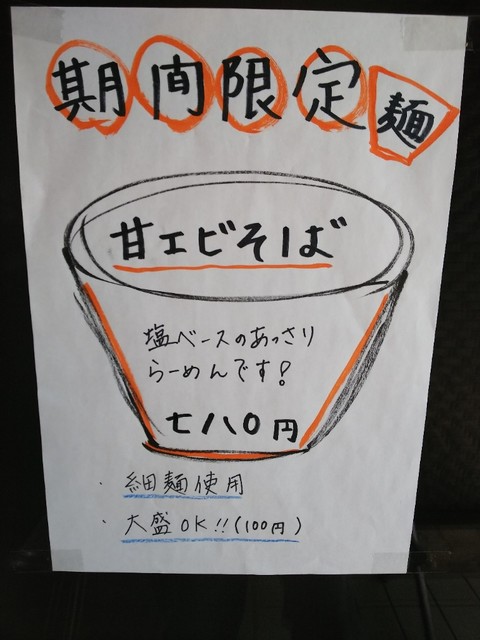 期間限定麺
甘エビそば
塩ベースのあっさり
らーめんです!
七八〇円
・細麺使用
・大盛OK!!(100円)